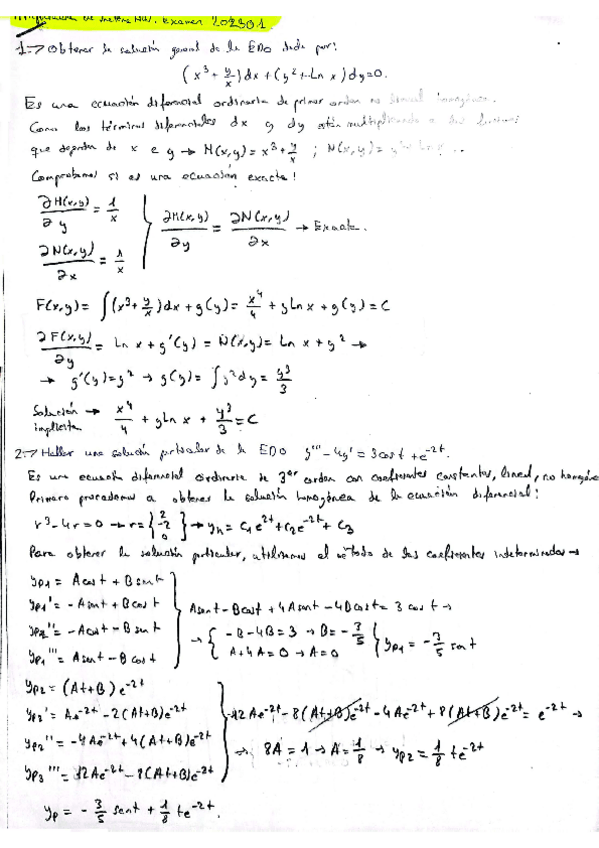 Examen 202301.
1.-> Obtener la solución general de la EDO dada por:
(x³ + y/x)dx + (y² + Ln x)dy = 0.
Es una ecuación diferencial ordinaria de primer orden no lineal homogénea.
Como los términos diferenciales dx y dy están multiplicando a las funciones
que dependen de x e y → M(x,y) = x³ + y/x ; N(x,y) =
Comprobamos si es una ecuación exacta:
∂M(x,y)/∂y = 1/x
∂N(x,y)/∂x = 1/x } ∂M(x,y)/∂y = ∂N(x,y)/∂x → Exacta.
F(x,y) = ∫(x³ + y/x)dx + g(y) = x⁴/4 + y Ln x + g(y) = C
∂F(x,y)/∂y = Ln x + g'(y) = N(x,y) = Ln x + y² →
→ g'(y) = y² → g(y) = ∫y² dy = y³/3
Solución implícita → x⁴/4 + y Ln x + y³/3 = C
2.-> Hallar una solución particular de la EDO y''' - 4y' = 3cos t + e^-2t.
Es una ecuación diferencial ordinaria de 3er orden con coeficientes constantes, lineal, no homogéne
Primero procedemos a obtener la solución homogénea de la ecuación diferencial:
r³ - 4r = 0 → r = { 2 -2 0 } → yh = C1 e^2t + C2 e^-2t + C3
Para obtener la solución particular, utilizamos el método de los coeficientes indeterminados →
yp1 = A cos t + B sen t
yp1' = -A sen t + B cos t
yp1'' = -A cos t - B sen t
yp1''' = A sen t - B cos t
A sen t - B cos t + 4A sen t - 4B cos t = 3 cos t →
→ { -B - 4B = 3 → B = -3/5
A + 4A = 0 → A = 0 } yp1 = -3/5 sen t
yp2 = (At + B)e^-2t
yp2' = Ae^-2t - 2(At + B)e^-2t
yp2'' = -4Ae^-2t + 4(At + B)e^-2t
yp3''' = 12Ae^-2t - 8(At + B)e^-2t
12Ae^-2t - 8(At + B)e^-2t - 4Ae^-2t + 8(At + B)e^-2t = e^-2t →
→ 8A = 1 → A = 1/8 → yp2 = 1/8 te^-2t
yp = -3/5 sen t + 1/8 te^-2t.